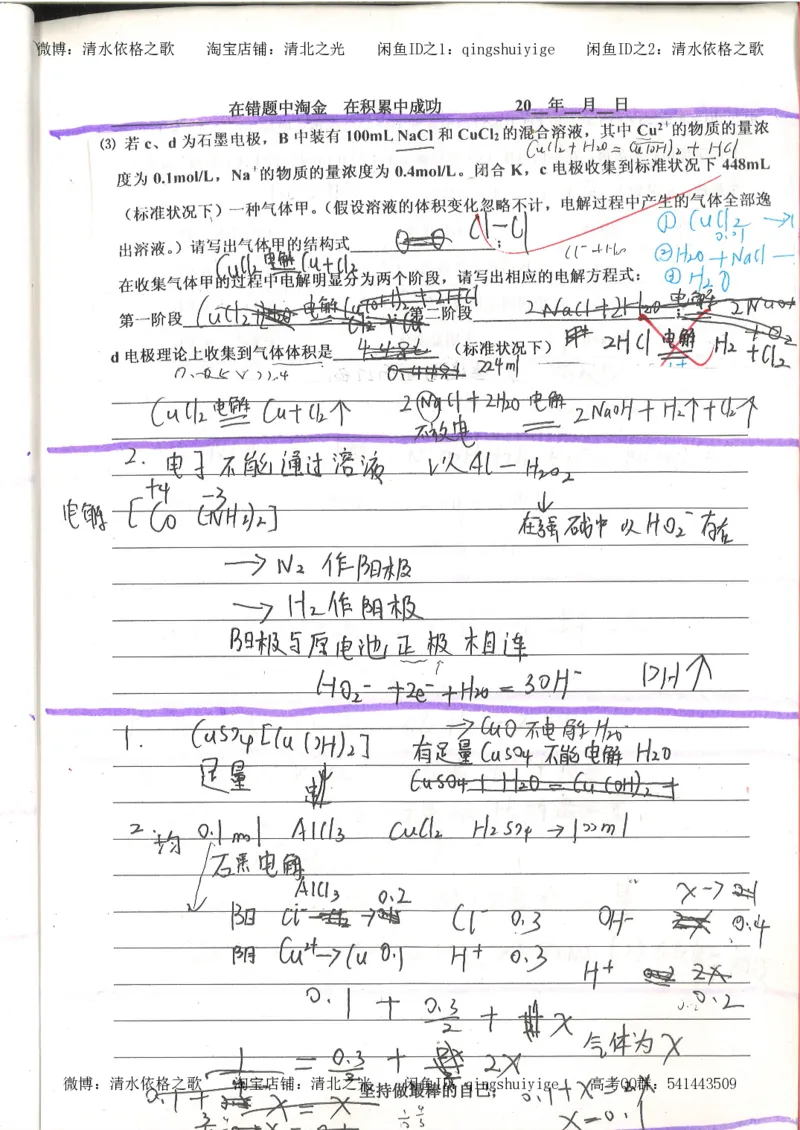 微博：清水依格之歌 淘宝店铺：清北之光 闲鱼ID之1：qingshuiyige 闲鱼ID之2：清水依格之歌
在错题中淘金 在积累中成功 20__年__月__日
⑶ 若 c、d 为石墨电极，B 中装有 100mL NaCl 和 CuCl₂ 的混合溶液，其中 Cu²⁺的物质的量浓
CuCl₂ + H₂O = Cu(OH)₂ + HCl
度为 0.1mol/L，Na⁺的物质的量浓度为 0.4mol/L。闭合 K，c 电极收集到标准状况下 448mL
（标准状况下）一种气体甲。（假设溶液的体积变化忽略不计，电解过程中产生的气体全部逸
① CuCl₂ →
0.01
出溶液。）请写出气体甲的结构式 Cl—Cl ；
② H₂O + NaCl —
③ H₂O
CuCl₂ 电解 Cu + Cl₂
在收集气体甲的过程中电解明显分为两个阶段，请写出相应的电解方程式：
第一阶段 ； 第二阶段 2NaCl + 2H₂O 电解 2NaOH ；
d 电极理论上收集到气体体积是 （标准状况下） 2HCl 电解 H₂ + Cl₂
224ml
CuCl₂ 电解 Cu + Cl₂↑ 2NaCl + 2H₂O 电解 2NaOH + H₂↑ + Cl₂↑
不放电
2. 电子不能通过溶液 以Al — H₂O₂
+4 -3
电解 [Co (NH₂)₂] 在强碱中以HO₂⁻存在
→ N₂ 作阳极
→ H₂ 作阴极
阳极与原电池正极相连
HO₂⁻ + 2e⁻ + H₂O = 3OH⁻ PH↑
1. CuSO₄ [Cu(OH)₂] → CuO 不电解H₂O
足量 有足量 CuSO₄ 不能电解 H₂O
CuSO₄ + H₂O = Cu(OH)₂ +
2. 均 0.1mol AlCl₃ CuCl₂ H₂SO₄ → 100ml
石墨电解
AlCl₃ 0.2 x→
阳 Cl⁻ Cl⁻ 0.3 OH⁻ 0.4
阴 Cu²⁺→Cu 0.1 H⁺ 0.3 H⁺ 2x
0.2
0.1 + 0.3/2 + x
气体为x
= 0.3/2 + 2x
微博：清水依格之歌 淘宝店铺：清北之光 闲鱼ID：qingshuiyige 高考QQ群：541443509
坚持做最棒的自己；
0.1 + x = 2x
x = 0.1